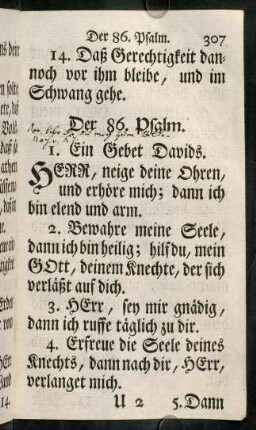 Der 86. Psalm. 307
14. Daß Gerechtigkeit dan-
noch vor ihm bleibe, und im
Schwang gehe.
Der 86. Psalm.
1. Ein Gebet Davids.
HERR, neige deine Ohren,
und erhöre mich; dann ich
bin elend und arm.
2. Bewahre meine Seele,
dann ich bin heilig; hilf du, mein
GOtt, deinem Knechte, der sich
verläßt auf dich.
3. HErr, sey mir gnädig,
dann ich ruffe täglich zu dir.
4. Erfreue die Seele deines
Knechts, dann nach dir, HErr,
verlanget mich.
U 2 5. Dann